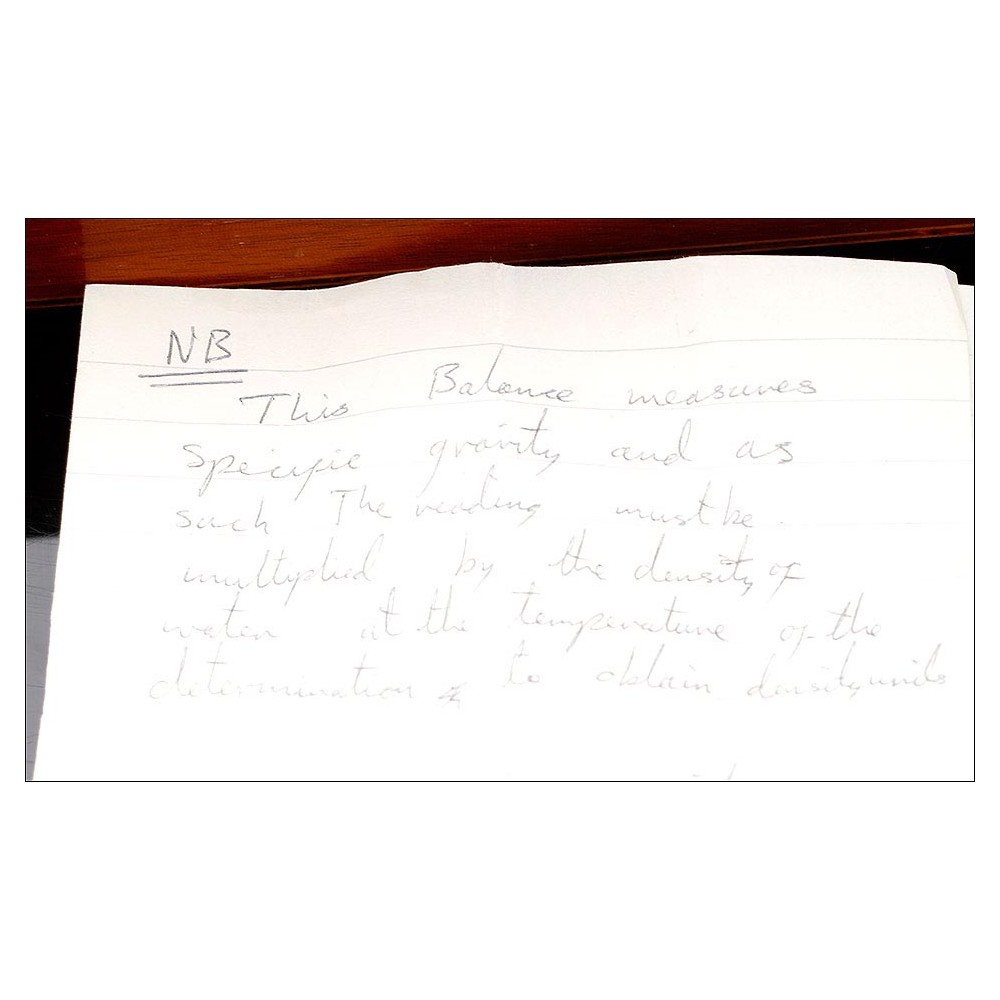 NB
This Balance measures
Specific gravity and as
such The reading must be
multiplied by the density of
water at the temperature of the
determination to obtain density units